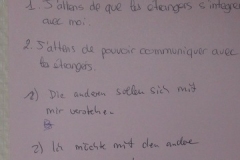 1. J'attens de que les étrangers s'intègrent
avec moi.
2. J'attens de pouvoir communiquer avec
les étrangers.
1) Die anderen sollen sich mit
mir verstehen
2) Ich möchte mit den andere